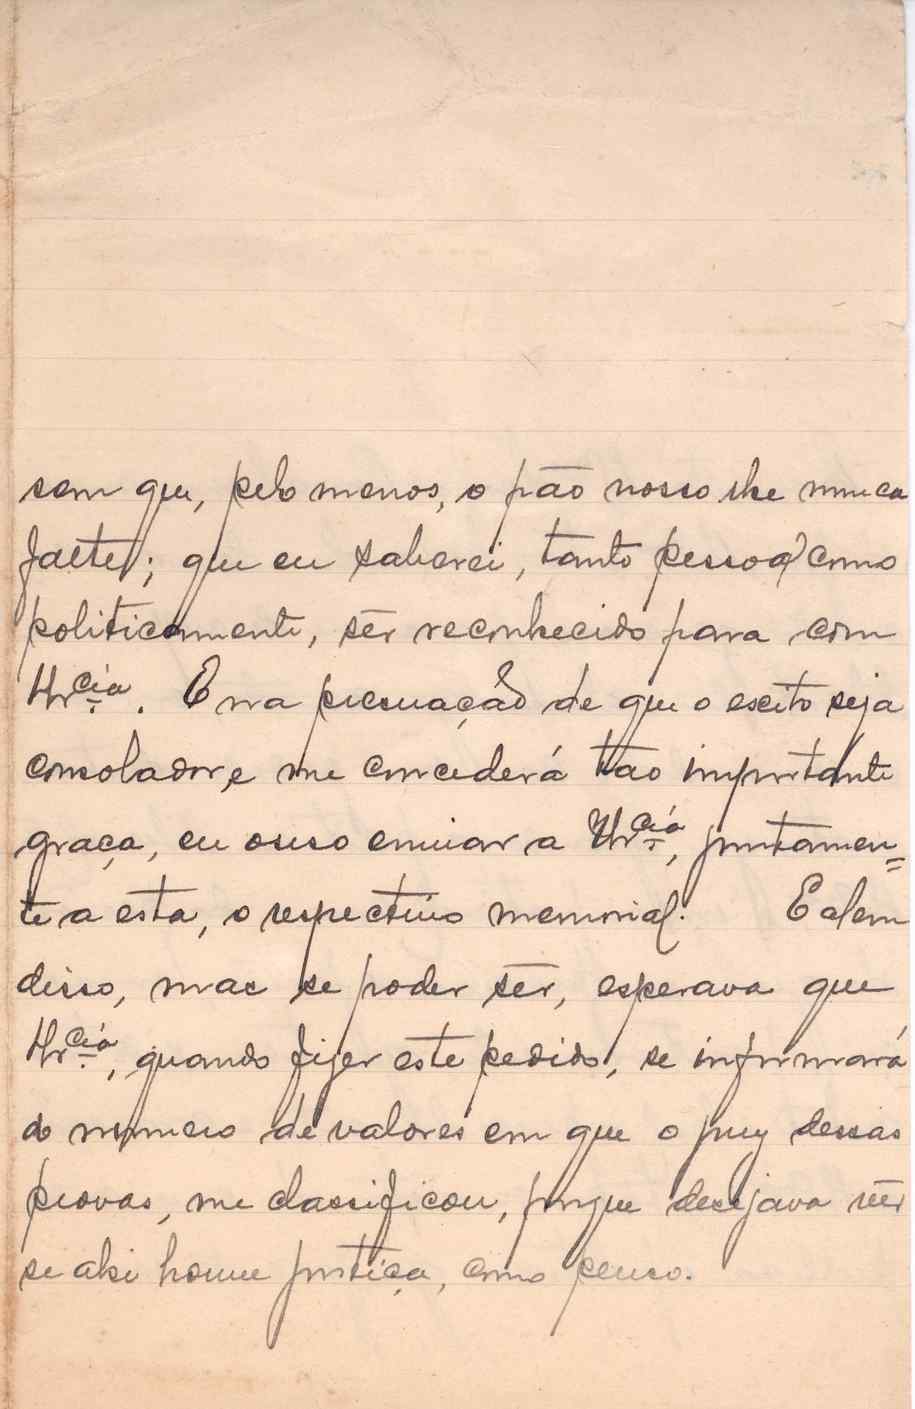 sem que, pelo menos, o pão nosso lhe nunca
falte; que eu saberei, tanto pessoal como
politicamente, sêr reconhecido para com
V.cia. E na persuação de que o exito seja
consolador, e me concederá tão importante
graça, eu ouso enviar a V.cia, juntamen=
te a esta, o respectivo memorial. E alem
disso, mas se poder sêr, esperava que
V.cia, quando fizer este pedido, se informará
do numero de valores em que o jury dessas
provas, me classificou, porque desejava vêr
se ahi houve justiça, como penso.